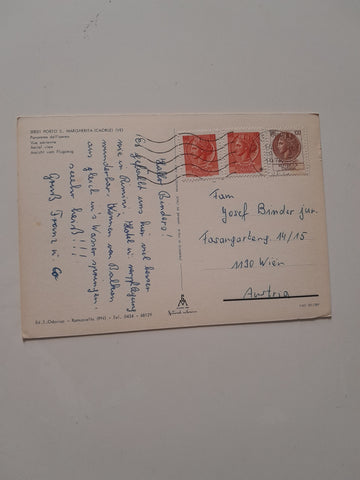 30021 PORTO S. MARGHERITA (CAORLE) (VE)
Panorama dall'aereo
Vue aérienne
Aerial view
Ansicht vom Flugzeug
Hallo Binders!
Es gefällt uns hier viel besser
wie in Rimini. Hotel u. Verpflegung
wunderbar. Können vom Balkon
aus gleich ins Wasser springen.
sehr heiß!!!
Gruß Franz u.
Fam
Josef Binder jun.
Fasangarteng. 14/15
1130 Wien
Austria
Ed. S. Odorico - Ramuscello (PN) - Tel. 0434 - 68129